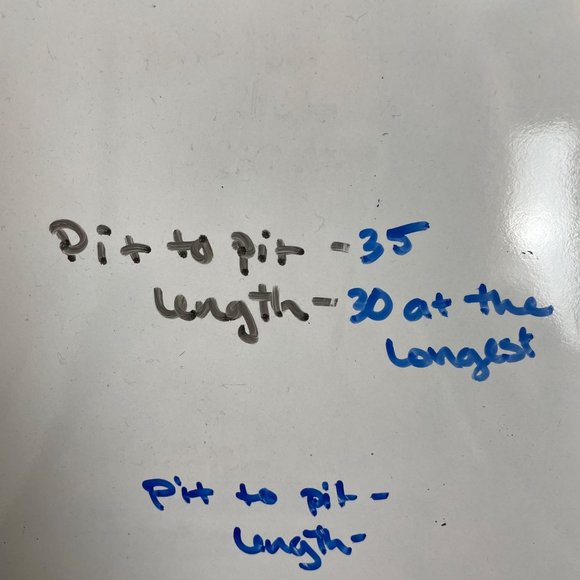 Pit to pit - 35
Length - 30 at the
Longest
Pit to pit -
Length -